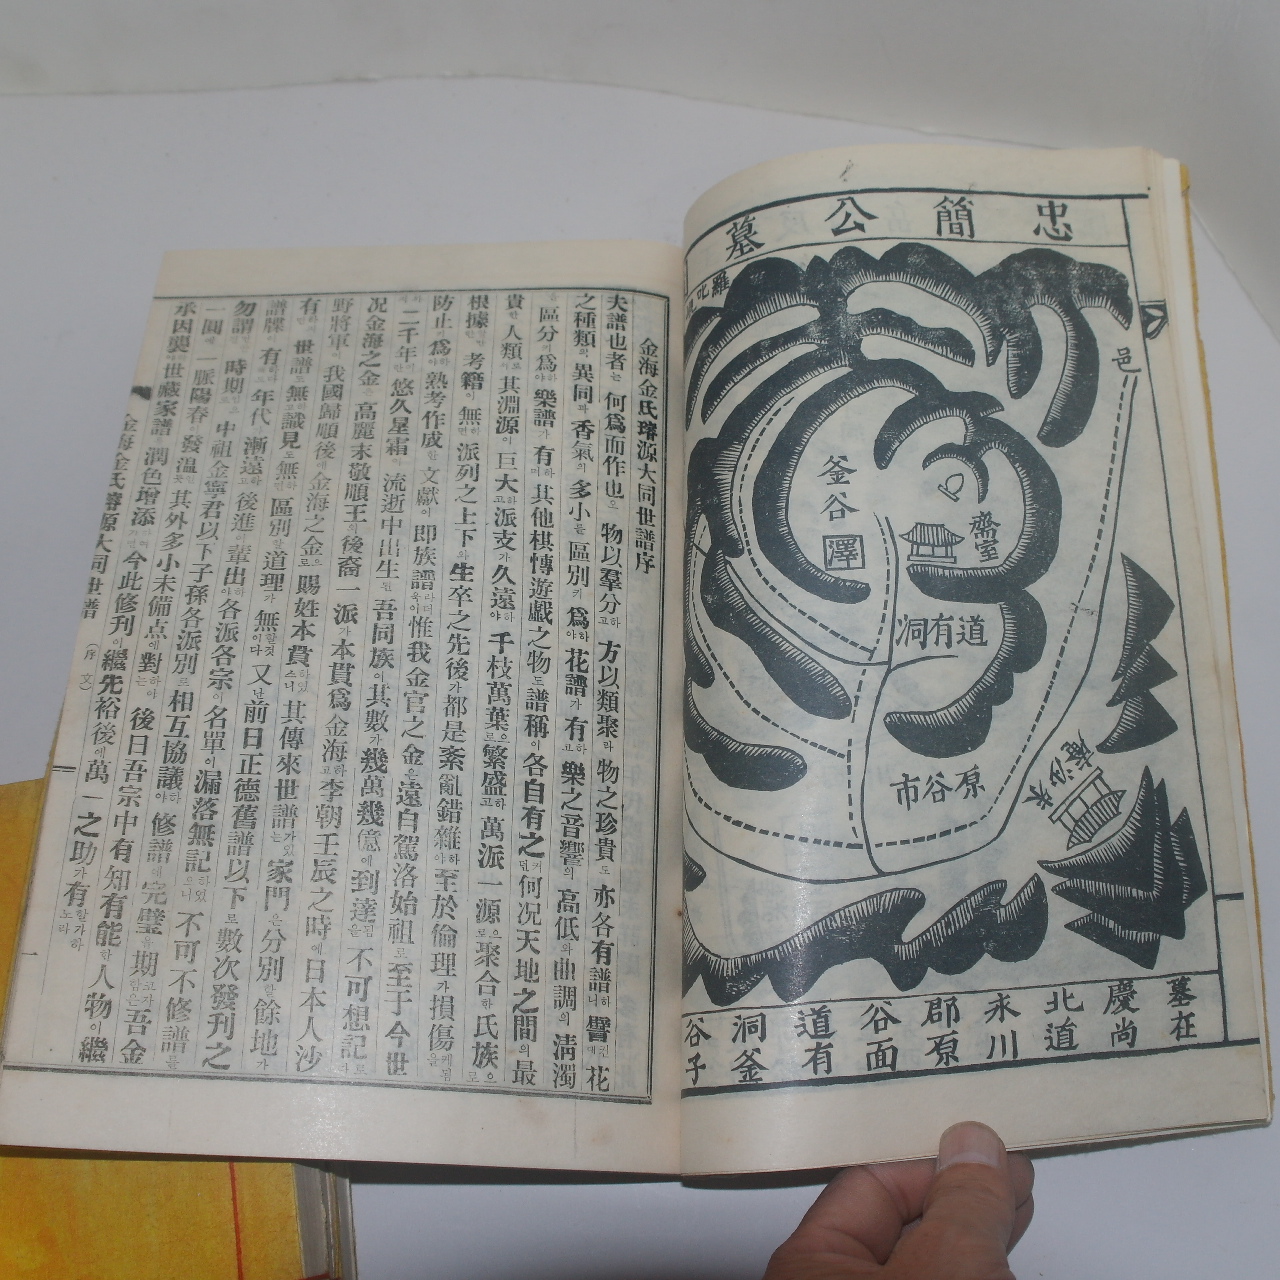 忠簡公墓
邑
釜谷
澤
齋室
道有洞
原谷市
墓在
慶尚
北道
永川
郡原
谷面
道有
洞釜
谷子
金海金氏璿源大同世譜序
夫譜也者는 何爲而作也오 物以羣分하고 方以類聚라 物之珍貴도 亦各有譜하니 譬컨대 花
之種類의 異同과 香氣의 多小를 區別키 爲하야 花譜가 有하고 樂之音響의 高低와 曲調의 淸濁
을 區分키 爲하야 樂譜가 有하며 其他棋博遊戱之物도 譜稱이 各自有之커던 何况天地之間의 最
貴한 人類로서 其淵源이 巨大하고 派支가 久遠하야 千枝萬葉으로 繁盛하고 萬派一源으로 聚合한 氏族으로
根據한 考籍이 無하면 派列之上下와 生卒之先後가 都是紊亂錯雜하야 至於倫理가 損傷케됨을
防止하기 爲하야 熟考作成한 文獻이 即族譜라더욱이 惟我金官之金은 遠自駕洛始祖로 至于今世
에 二千年이란 悠久星霜이 流逝中出生된 吾同族이 其數가 幾萬幾億에 到達됨을 不可想記로다
况金海之金은 高麗末敬順王이 後裔一派가 本貫爲金海하고 李朝壬辰之時에 日本人沙
野將軍이 我國歸順後에 金海之金으로 賜姓本貫하였스니 其傳來世譜가있는 家門은 分別할餘地가
有하려니와 世譜도 無하고 識見도 無하면 區別할 道理가 無할것이다 又난 前日正德舊譜以下로 數次發刊之
譜牒이 有하나 年代가 漸遠하고 後進이 輩出하야 各派各宗이 名單이 漏落無記하였으니 不可不修譜를
勿謂 時期 中祖金寧君以下子孫各派別로 相互協議하야 修譜에 完璧을 期코자함은 吾金
一圓에 一脈陽春이 發溫 其外多小未備点에 對하야는 後日吾宗中有知有能한 人物이 繼
承因襲 世藏家譜 潤色增添 今此修刊이 繼先裕後에 萬一之助가 有할가하노라
金海金氏璿源大同世譜 (序文) 一